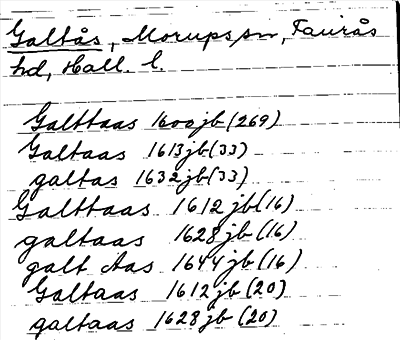 Galtås, Morups sn, Faurås
hd, Hall. l.
Galttaas 1600 jb (269)
Galtaas 1613 jb (33)
galtas 1632 jb (33)
Galttaas 1612 jb (16)
galtaas 1628 jb (16)
galt Aas 1644 jb (16)
Galtaas 1612 jb (20)
galtaas 1628 jb (20)